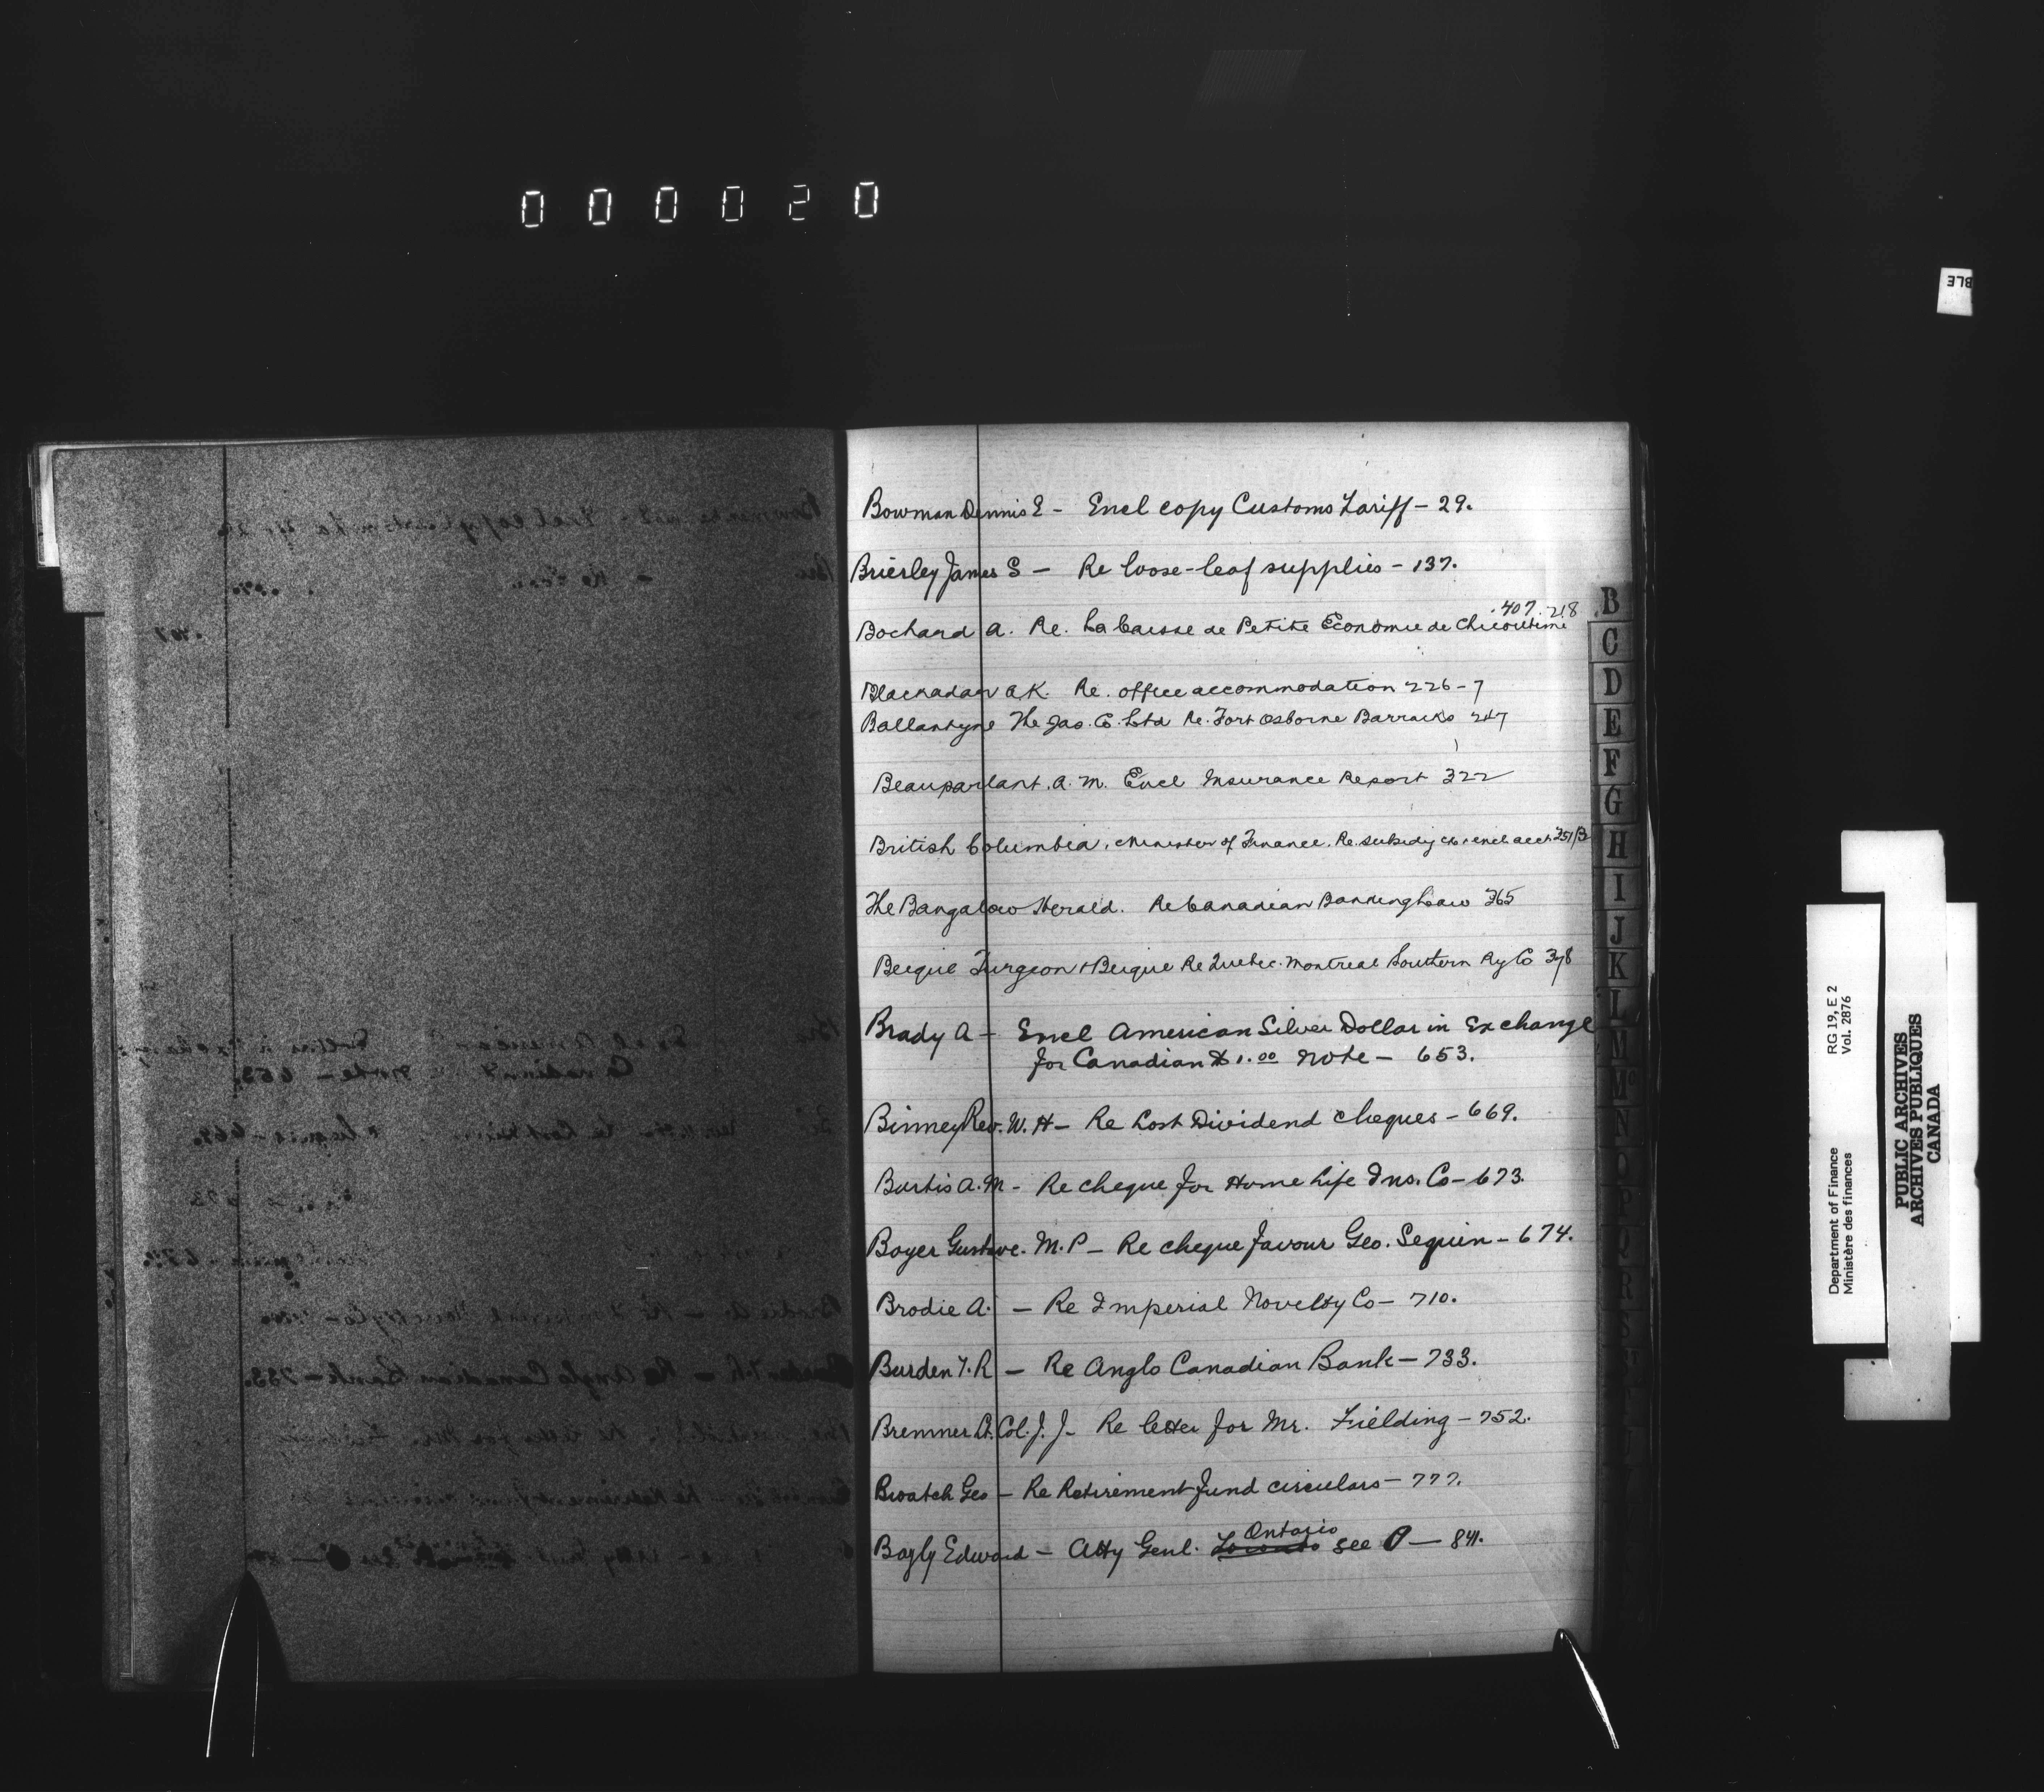 000020
BLE
Bowman Dennis E - Encl copy Customs Tariff - 29.
Brierley James S - Re loose-leaf supplies - 137.
.407. 218
Bochard A. Re. La Caisse de Petite Economie de Chicoutimi
Blackadar A.K. Re. office accommodation 226-7
Ballantyne The Jas. Co. Ltd Re. Fort Osborne Barracks 247
Beauparlant. A. M. Encl Insurance Report 322
British Columbia, Minister of Finance. Re. subsidy encl acct 351
The Bangalow Herald. Re Canadian Banking Law 365
Beique Turgeon & Beique Re Quebec. Montreal Southern Ry Co 378
Brady A - Encl American Silver Dollar in Exchange
for Canadian $1.00 Note - 653.
Binney Rev. W. H - Re Lost Dividend cheques - 669.
Burtis A. M - Re cheque for Home Life Ins. Co - 673.
Boyer Gustave. M.P - Re cheque favour Geo. Seguin - 674.
Brodie A. - Re Imperial Novelty Co - 710.
Burden T. R - Re Anglo Canadian Bank - 733.
Bremner Lt. Col. J. J - Re letter for Mr. Fielding - 752.
Bwatch Geo - Re Retirement fund circulars - 777.
Ontario
Bayly Edward - Atty Genl. Toronto see O - 841.
B
C
D
E
F
G
H
I
J
K
L
M
Mc
N
O
P
Q
R
S
Department of Finance
Ministère des finances
RG 19, E 2
Vol. 2876
PUBLIC ARCHIVES
ARCHIVES PUBLIQUES
CANADA